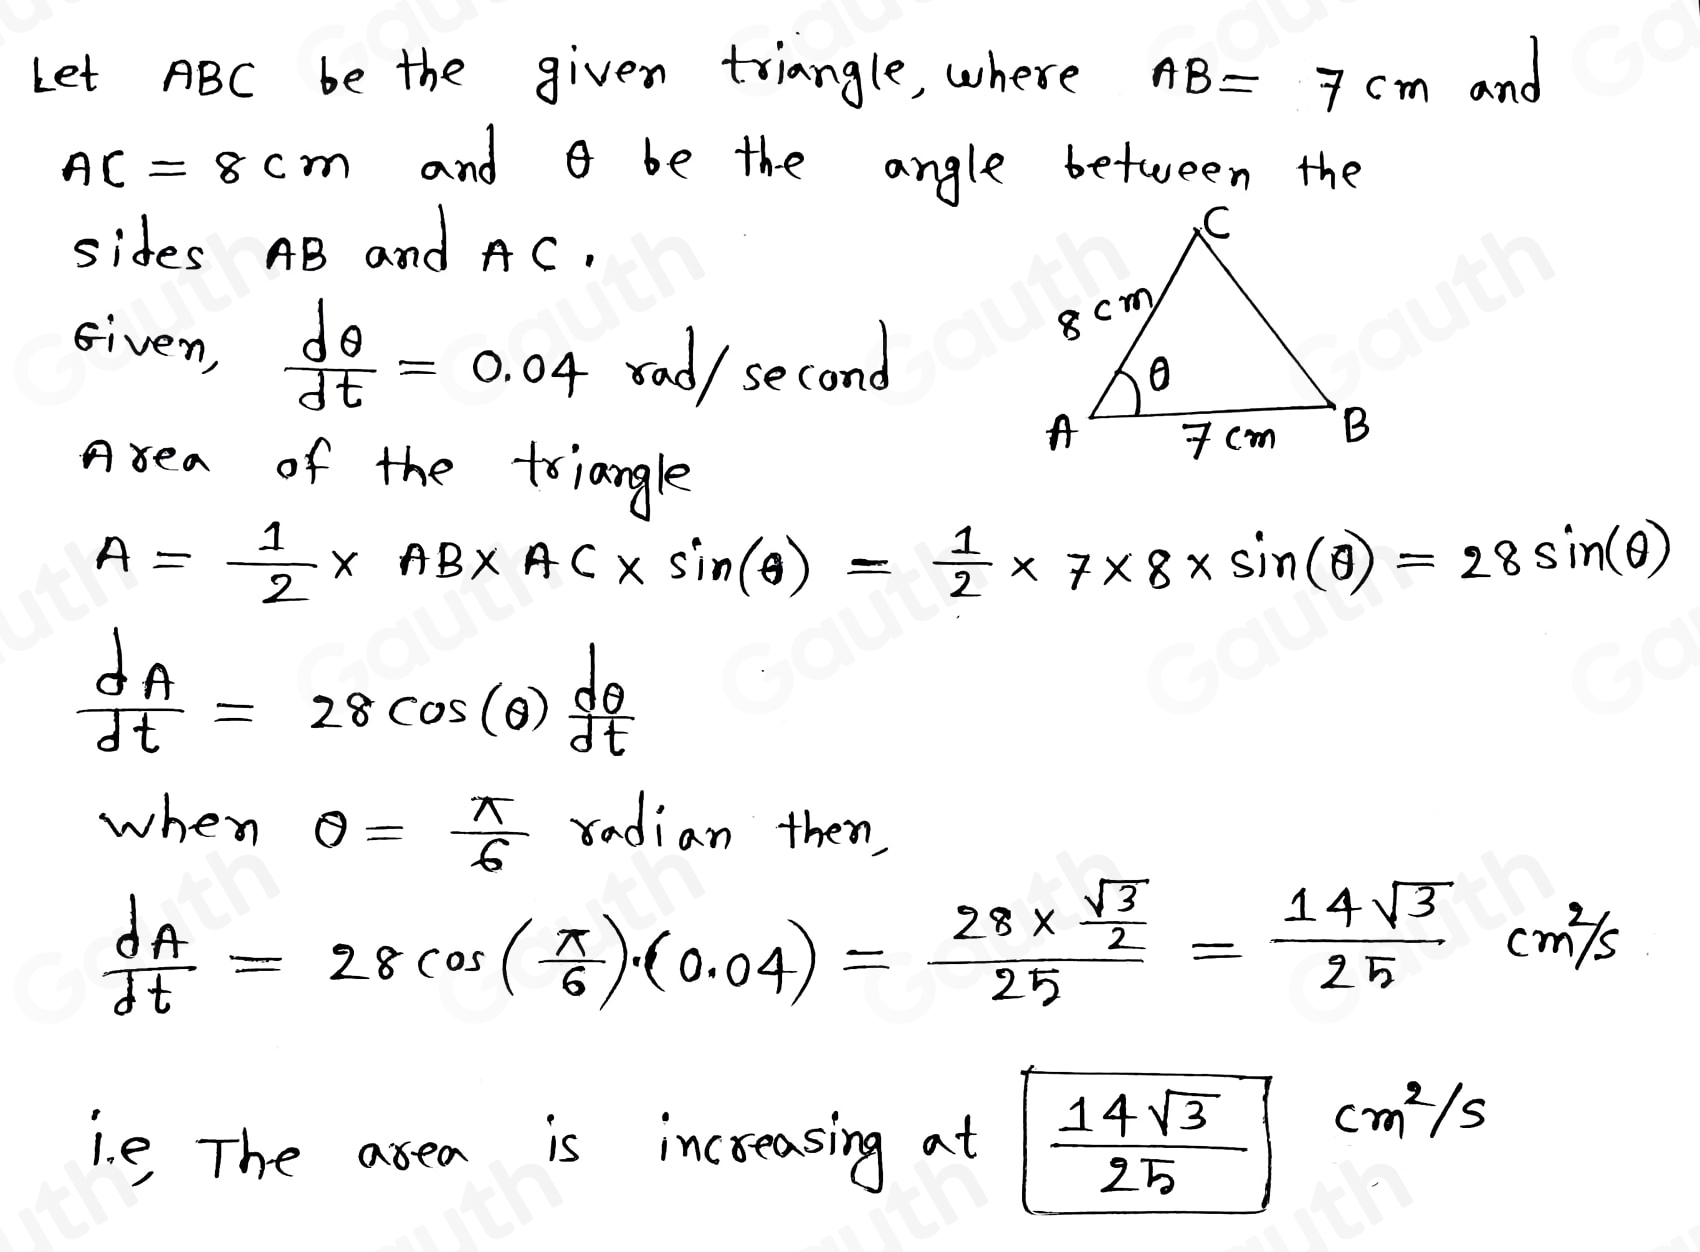 Let ABC be the given triangle, where AB = 7 cm and
AC = 8 cm and θ be the angle between the
sides AB and AC.
C
8 cm
θ
A
7 cm
B
Given, dθ/dt = 0.04 rad/second
Area of the triangle
A = 1/2 × AB × AC × sin(θ) = 1/2 × 7 × 8 × sin(θ) = 28 sin(θ)
dA/dt = 28 cos(θ) dθ/dt
when θ = π/6 radian then,
dA/dt = 28 cos(π/6)·(0.04) = (28 × √3/2)/25 = 14√3/25 cm²/s
i.e, The area is increasing at 14√3/25 cm²/s
Gauth